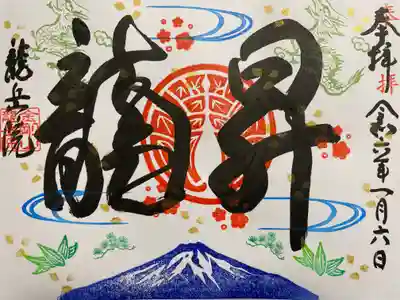 奉拝
令和六年一月六日
昇龍
龍岳院